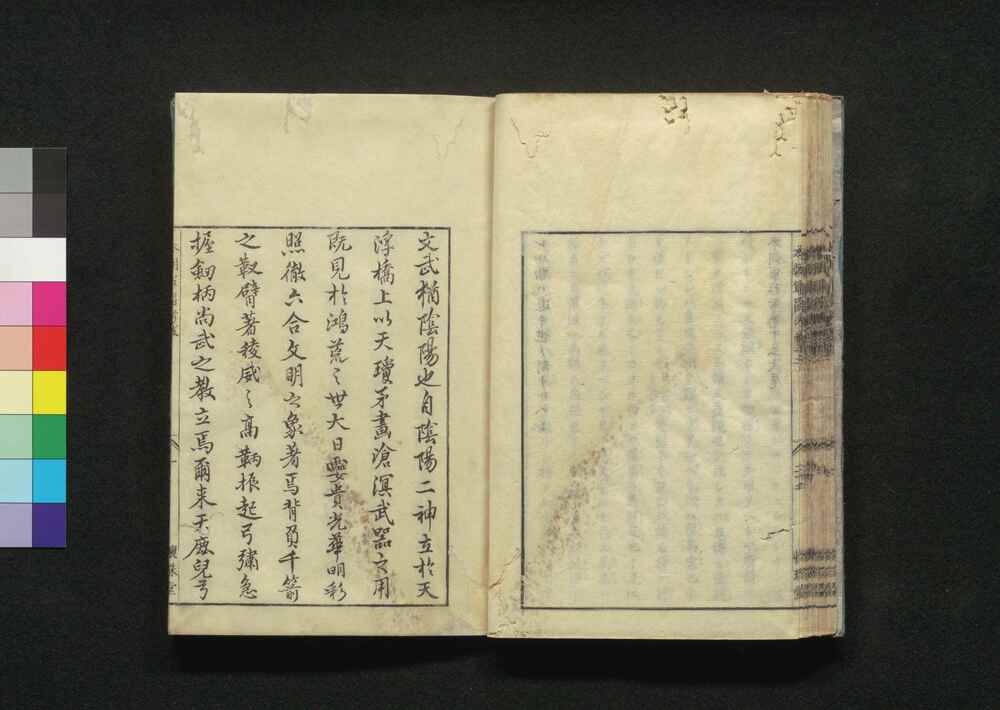 文武猶陰陽也自陰陽二神立於天
浮橋上以天瓊矛畫滄溟武器之用
既見於鴻荒之世大日孁貴光華明彩
照徹六合文明之象著焉背負千箭
之靫臂著稜威之高鞆振起弓彇急
握劔柄尚武之教立焉爾来天鹿兒弓